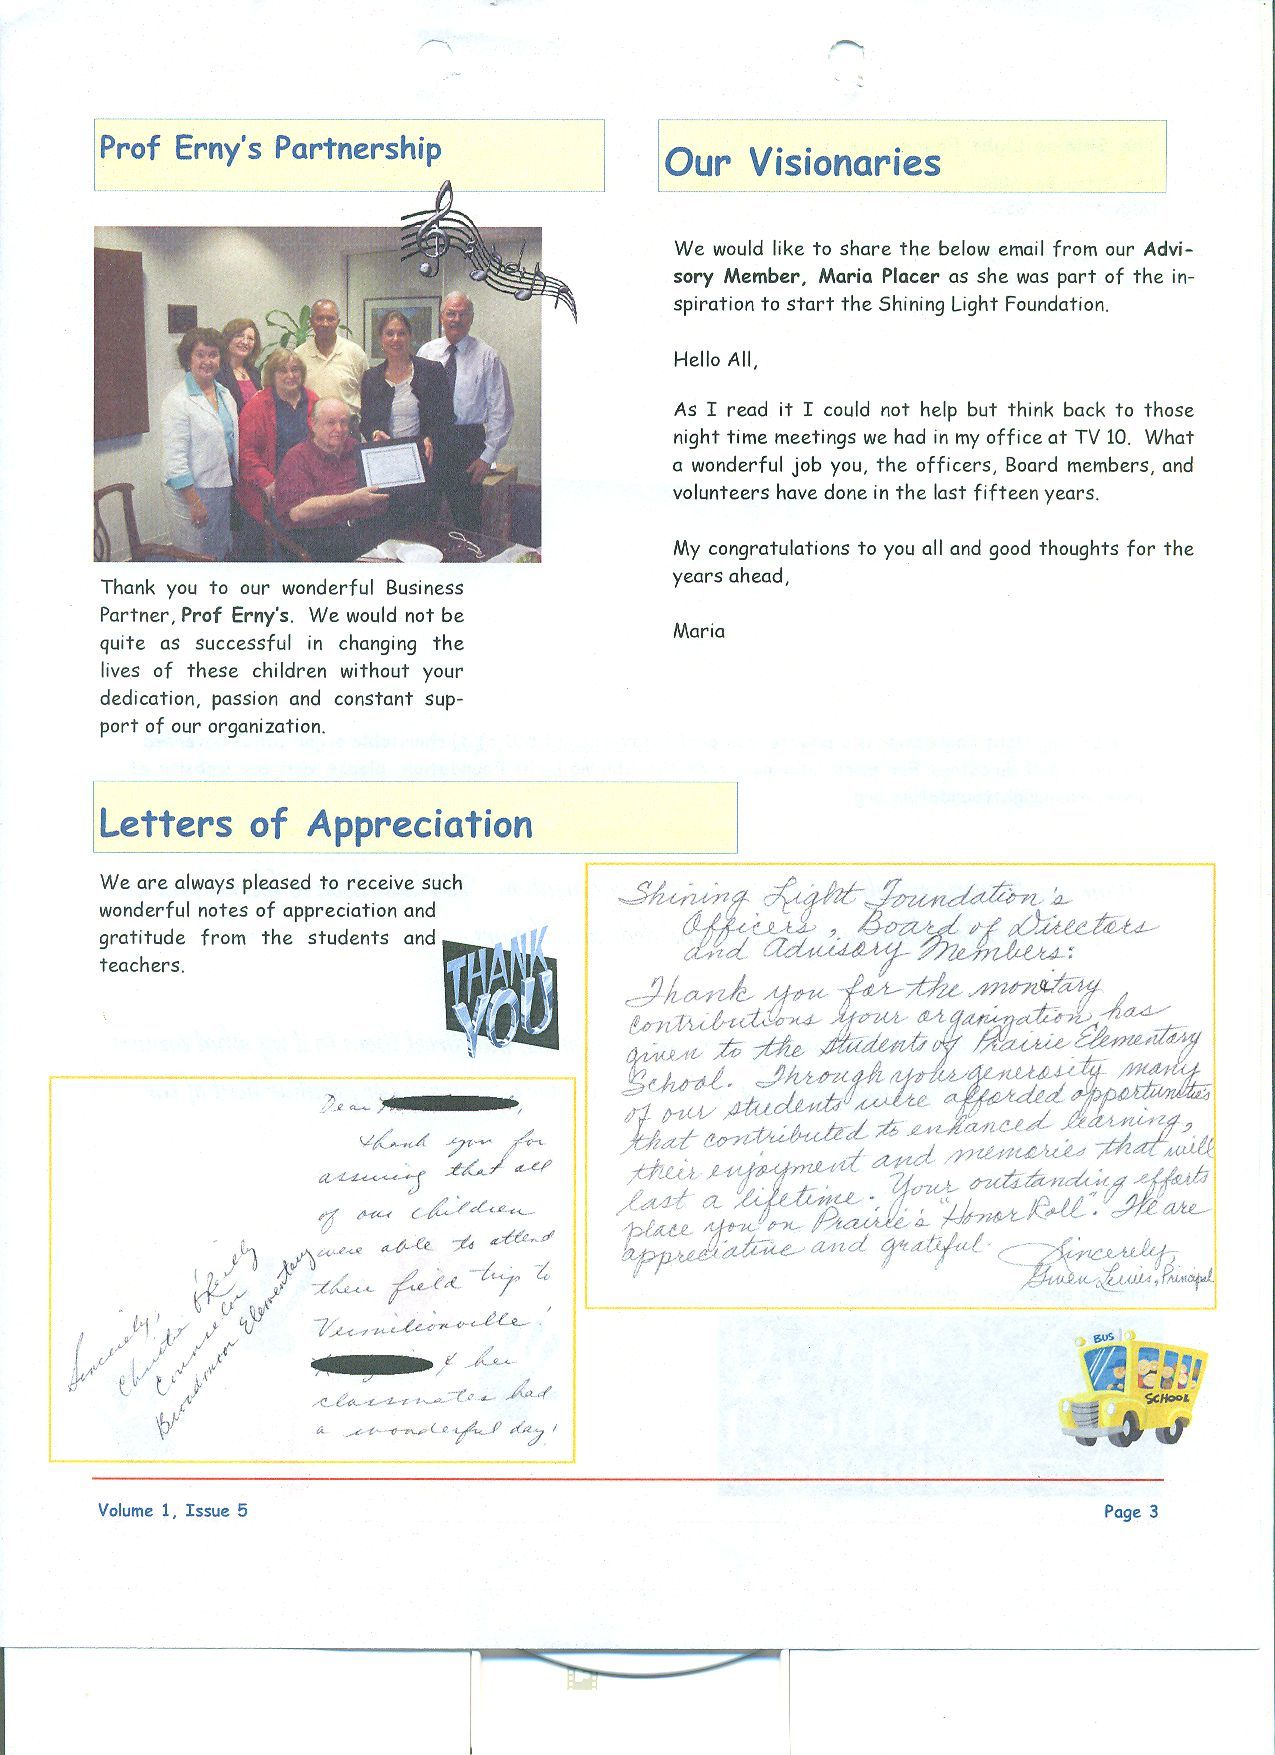 Prof Erny's Partnership
Thank you to our wonderful Business
Partner, Prof Erny's. We would not be
quite as successful in changing the
lives of these children without your
dedication, passion and constant sup-
port of our organization.
Our Visionaries
We would like to share the below email from our Advi-
sory Member, Maria Placer as she was part of the in-
spiration to start the Shining Light Foundation.
Hello All,
As I read it I could not help but think back to those
night time meetings we had in my office at TV 10. What
a wonderful job you, the officers, Board members, and
volunteers have done in the last fifteen years.
My congratulations to you all and good thoughts for the
years ahead,
Maria
Letters of Appreciation
We are always pleased to receive such
wonderful notes of appreciation and
gratitude from the students and
teachers.
THANK
YOU
Dear
thank you for
assuring that all
of our children
were able to attend
their field trip to
Vermilionville!
& her
classmates had
a wonderful day!
Sincerely,
Christa O'Reilly
Counselor
Broadmoor Elementary
Shining Light Foundation's
Officers, Board of Directors
and Advisory Members:
Thank you for the monetary
contributions your organization has
given to the students of Prairie Elementary
School. Through your generosity many
of our students were afforded opportunities
that contributed to enhanced learning,
their enjoyment and memories that will
last a lifetime. Your outstanding efforts
place you on Prairie's "Honor Roll". We are
appreciative and grateful.
Sincerely,
Gwen Lewis, Principal
BUS
SCHOOL
Volume 1, Issue 5
Page 3